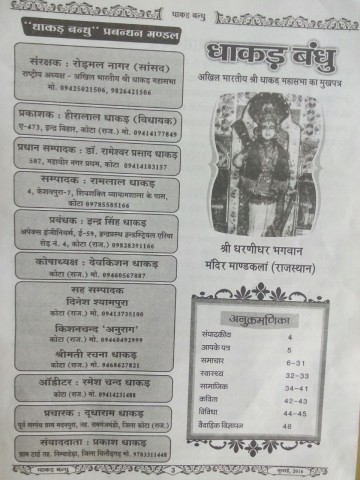 धाकड़ बन्धु
"धाकड़ बन्धु" प्रबन्धन मण्डल
संरक्षक : रोड़मल नागर (सांसद)
राष्ट्रीय अध्यक्ष - अखिल भारतीय श्री धाकड़ महासभा
मो. 09425021506, 9826421506
प्रकाशक : हीरालाल धाकड़ (विधायक)
ए-473, इन्द्रा विहार, कोटा (राज.) मो. 09414177849
प्रधान सम्पादक : डॉ. रामेश्वर प्रसाद धाकड़
587, महावीर नगर प्रथम, कोटा 09414183157
सम्पादक : रामलाल धाकड़
4, केशवपुरा-7, शिवशक्ति व्यायामशाला के पास,
कोटा 09785585166
प्रबंधक : इन्द्र सिंह धाकड़
अपेक्स इंजीनियर्स, ई-59, इन्द्रप्रस्थ इन्डस्ट्रियल एरिया
रोड़ नं. 4, कोटा (राज.) 09828391166
कोषाध्यक्ष : देवकिशन धाकड़
कोटा (राज.) मो. 09460567887
सह सम्पादक
दिनेश श्यामपुरा
कोटा (राज.) मो. 09413735100
किशनचन्द 'अनुराग'
कोटा (राज.) मो. 09460492999
श्रीमती रचना धाकड़
कोटा (राज.) मो. 9468627821
ऑडीटर : रमेश चन्द धाकड़
कोटा (राज.) मो. 09414231488
प्रचारक : दूधाराम धाकड़
पूर्व सरपंच ग्राम मदनपुरा, तह. रामगंजमंडी, जिला कोटा (राज.)
संवाददाता : प्रकाश धाकड़
ग्राम टाई तह. निम्बाहेड़ा, जिला चित्तौड़गढ़ मो. 9783311448
धाकड़ बंधु
अखिल भारतीय श्री धाकड़ महासभा का मुखपत्र
श्री धरणीधर भगवान
मंदिर माण्डकलां (राजस्थान)
अनुक्रमणिका
संपादकीय 4
आपके पत्र 5
समाचार 6-31
स्वास्थ्य 32-33
सामाजिक 34-41
कविता 42-43
विविधा 44-45
वैवाहिक विज्ञापन 48
धाकड़ बन्धु
3
जुलाई, 2016